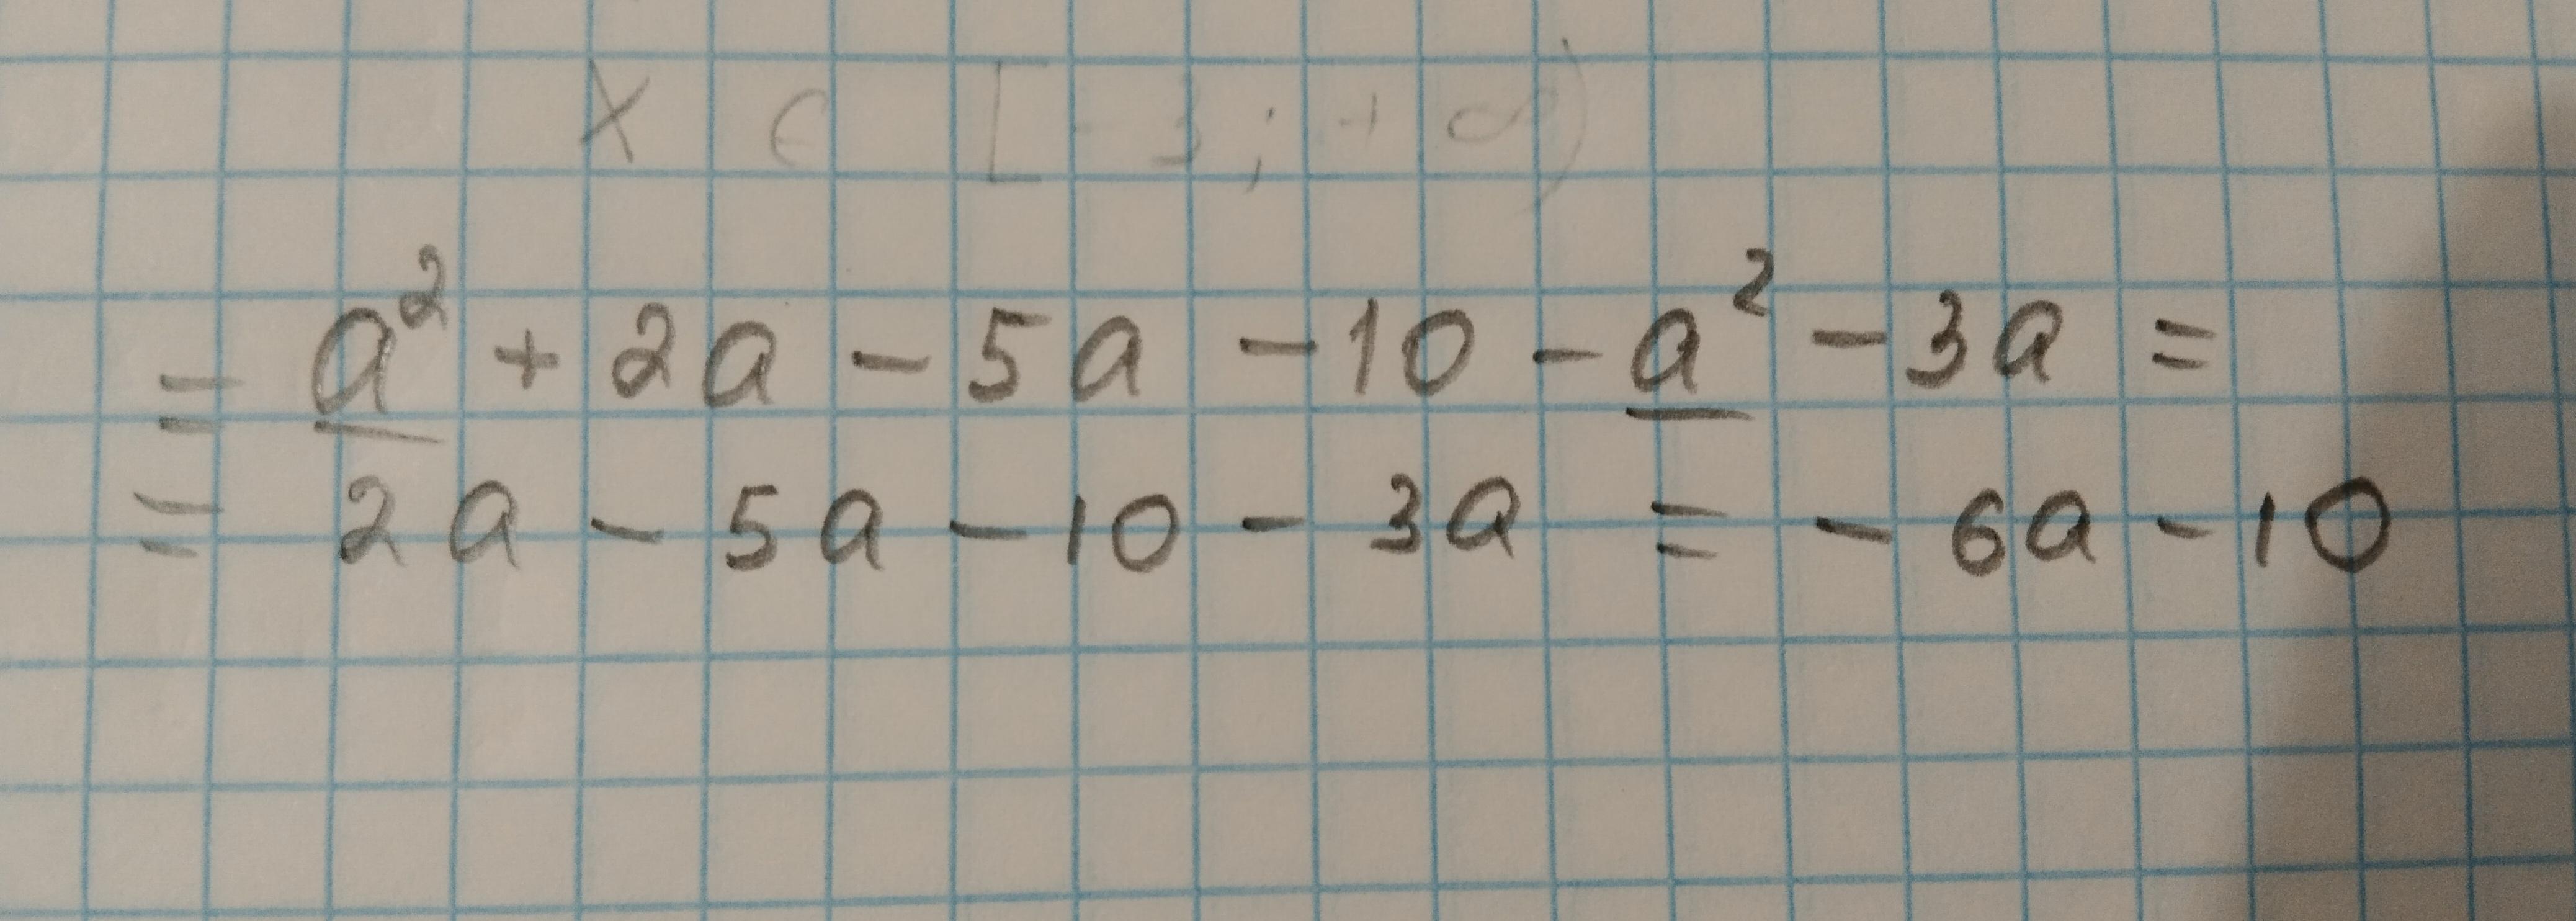 x ∈ [-3; +∞)
= a² + 2a - 5a - 10 - a² - 3a =
= 2a - 5a - 10 - 3a = - 6a - 10